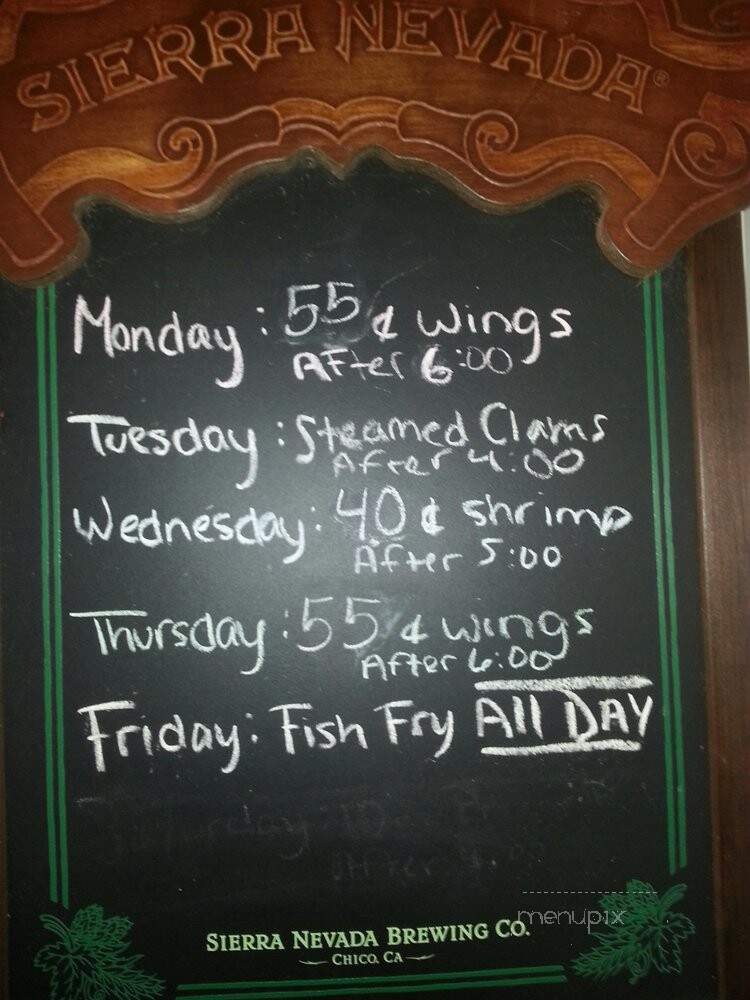 SIERRA NEVADA®
Monday: 55¢ wings
After 6:00
Tuesday: Steamed Clams
After 4:00
Wednesday: 40¢ shrimp
After 5:00
Thursday: 55¢ wings
After 6:00
Friday: Fish Fry All DAY
After
menupix
SIERRA NEVADA BREWING CO.
CHICO, CA